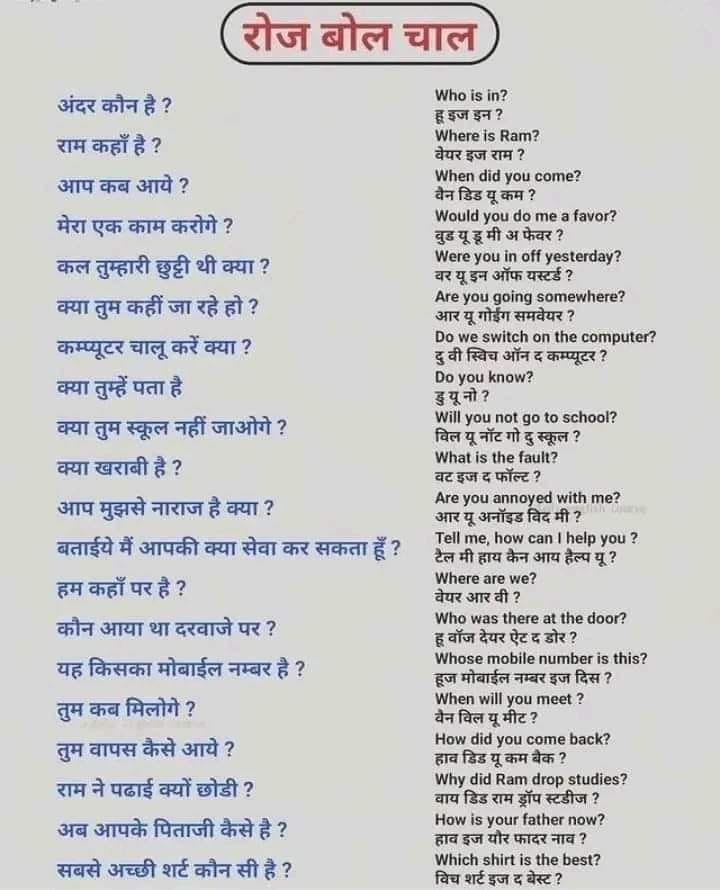 रोज बोल चाल
अंदर कौन है ?
Who is in?
हू इज इन ?
राम कहाँ है ?
Where is Ram?
वेयर इज राम ?
आप कब आये ?
When did you come?
वैन डिड यू कम ?
मेरा एक काम करोगे ?
Would you do me a favor?
वुड यू डू मी अ फेवर ?
कल तुम्हारी छुट्टी थी क्या ?
Were you in off yesterday?
वर यू इन ऑफ यस्टर्ड ?
क्या तुम कहीं जा रहे हो ?
Are you going somewhere?
आर यू गोईंग समवेयर ?
कम्प्यूटर चालू करें क्या ?
Do we switch on the computer?
दु वी स्विच ऑन द कम्प्यूटर ?
क्या तुम्हें पता है
Do you know?
डु यू नो ?
क्या तुम स्कूल नहीं जाओगे ?
Will you not go to school?
विल यू नॉट गो दु स्कूल ?
क्या खराबी है ?
What is the fault?
वट इज द फॉल्ट ?
आप मुझसे नाराज है क्या ?
Are you annoyed with me?
आर यू अनॉइड विद मी ?
बताईये मैं आपकी क्या सेवा कर सकता हूँ ?
Tell me, how can I help you ?
टैल मी हाय कैन आय हैल्प यू ?
हम कहाँ पर है ?
Where are we?
वेयर आर वी ?
कौन आया था दरवाजे पर ?
Who was there at the door?
हू वॉज देयर ऐट द डोर ?
यह किसका मोबाईल नम्बर है ?
Whose mobile number is this?
हूज मोबाईल नम्बर इज दिस ?
तुम कब मिलोगे ?
When will you meet ?
वैन विल यू मीट ?
तुम वापस कैसे आये ?
How did you come back?
हाव डिड यू कम बैक ?
राम ने पढाई क्यों छोडी ?
Why did Ram drop studies?
वाय डिड राम ड्रॉप स्टडीज ?
अब आपके पिताजी कैसे है ?
How is your father now?
हाव इज यौर फादर नाव ?
सबसे अच्छी शर्ट कौन सी है ?
Which shirt is the best?
विच शर्ट इज द बेस्ट ?